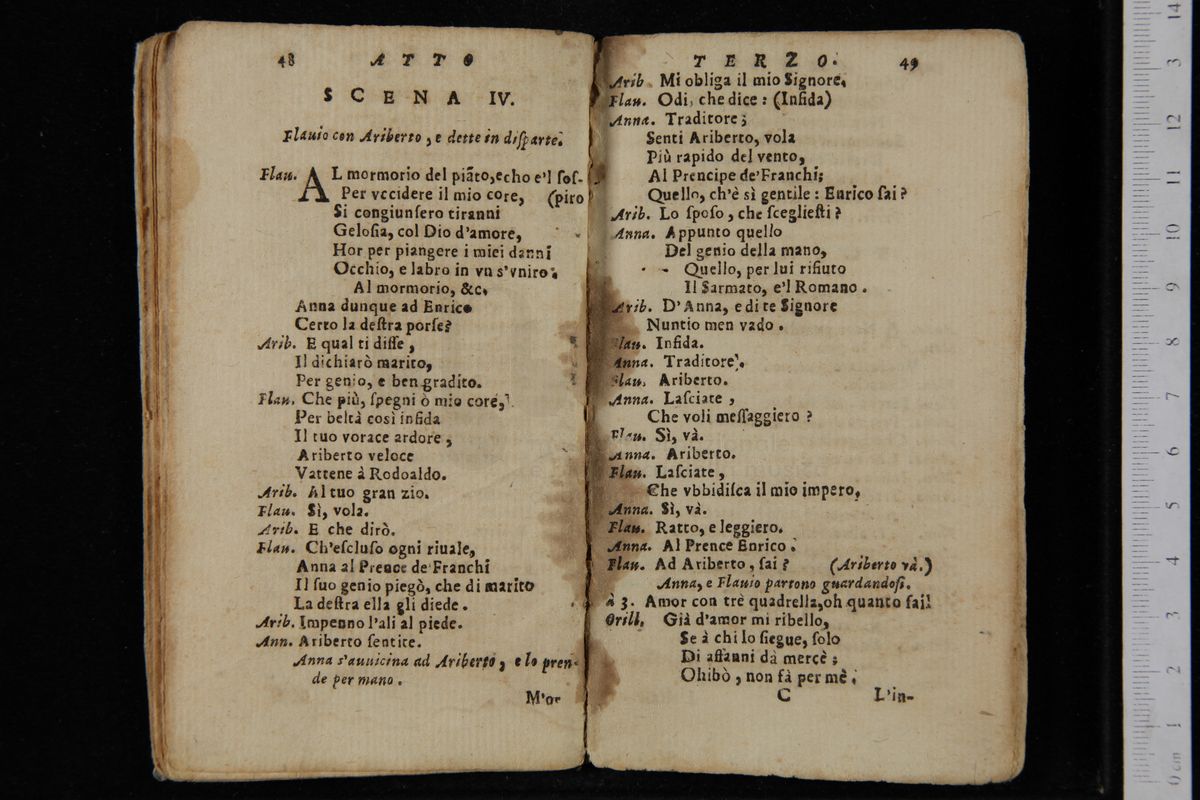 48 ATTO
SCENA IV.
Flauio con Ariberto, e dette in diſparte.
Flau. AL mormorio del piãto,echo e'l ſoſ-
Per vccidere il mio core, (piro
Si congiunſero tiranni
Geloſia, col Dio d'amore,
Hor per piangere i miei danni
Occhio, e labro in vn s'vniro.
Al mormorio, &c.
Anna dunque ad Enrico
Certo la deſtra porſe?
Arib. E qual ti diſſe,
Il dichiarò marito,
Per genio, e ben gradito.
Flau. Che più, ſpegni ò mio core,
Per beltà così infida
Il tuo vorace ardore,
Ariberto veloce
Vattene à Rodoaldo.
Arib. Al tuo gran zio.
Flau. Sì, vola.
Arib. E che dirò.
Flau. Ch'eſcluſo ogni riuale,
Anna al Prence de'Franchi
Il ſuo genio piegò, che di marito
La deſtra ella gli diede.
Arib. Impenno l'ali al piede.
Ann. Ariberto ſentite.
Anna s'auuicina ad Ariberto, e lo pren-
de per mano.
M'or
TERZO. 49
Arib. Mi obliga il mio Signore.
Flau. Odi, che dice: (Infida)
Anna. Traditore;
Senti Ariberto, vola
Più rapido del vento,
Al Prencipe de'Franchi;
Quello, ch'è sì gentile: Enrico ſai?
Arib. Lo ſpoſo, che ſceglieſti?
Anna. Appunto quello
Del genio della mano,
Quello, per lui rifiuto
Il Sarmato, e'l Romano.
Arib. D'Anna, e di te Signore
Nuntio men vado.
Flau. Infida.
Anna. Traditore.
Flau. Ariberto.
Anna. Laſciate,
Che voli meſſaggiero?
Flau. Sì, và.
Anna. Ariberto.
Flau. Laſciate,
Che vbbidiſca il mio impero,
Anna. Sì, và.
Flau. Ratto, e leggiero.
Anna. Al Prence Enrico.
Flau. Ad Ariberto, ſai? (Ariberto và.)
Anna, e Flauio partono guardandoſi.
à 3. Amor con trè quadrella,oh quanto fai!
Orill. Già d'amor mi ribello,
Se à chi lo ſiegue, ſolo
Di affanni dà mercè;
Ohibò, non fà per mè.
C L'in-